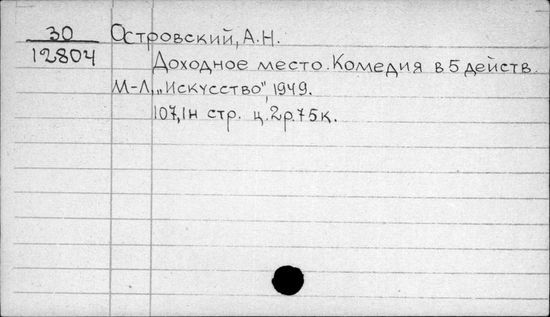 30 Островский, А.Н.
12804
Доходное место. Комедия в 5 действ.
М-Л, „Искусство", 1949.
107,1н стр. ц.2р.75к.